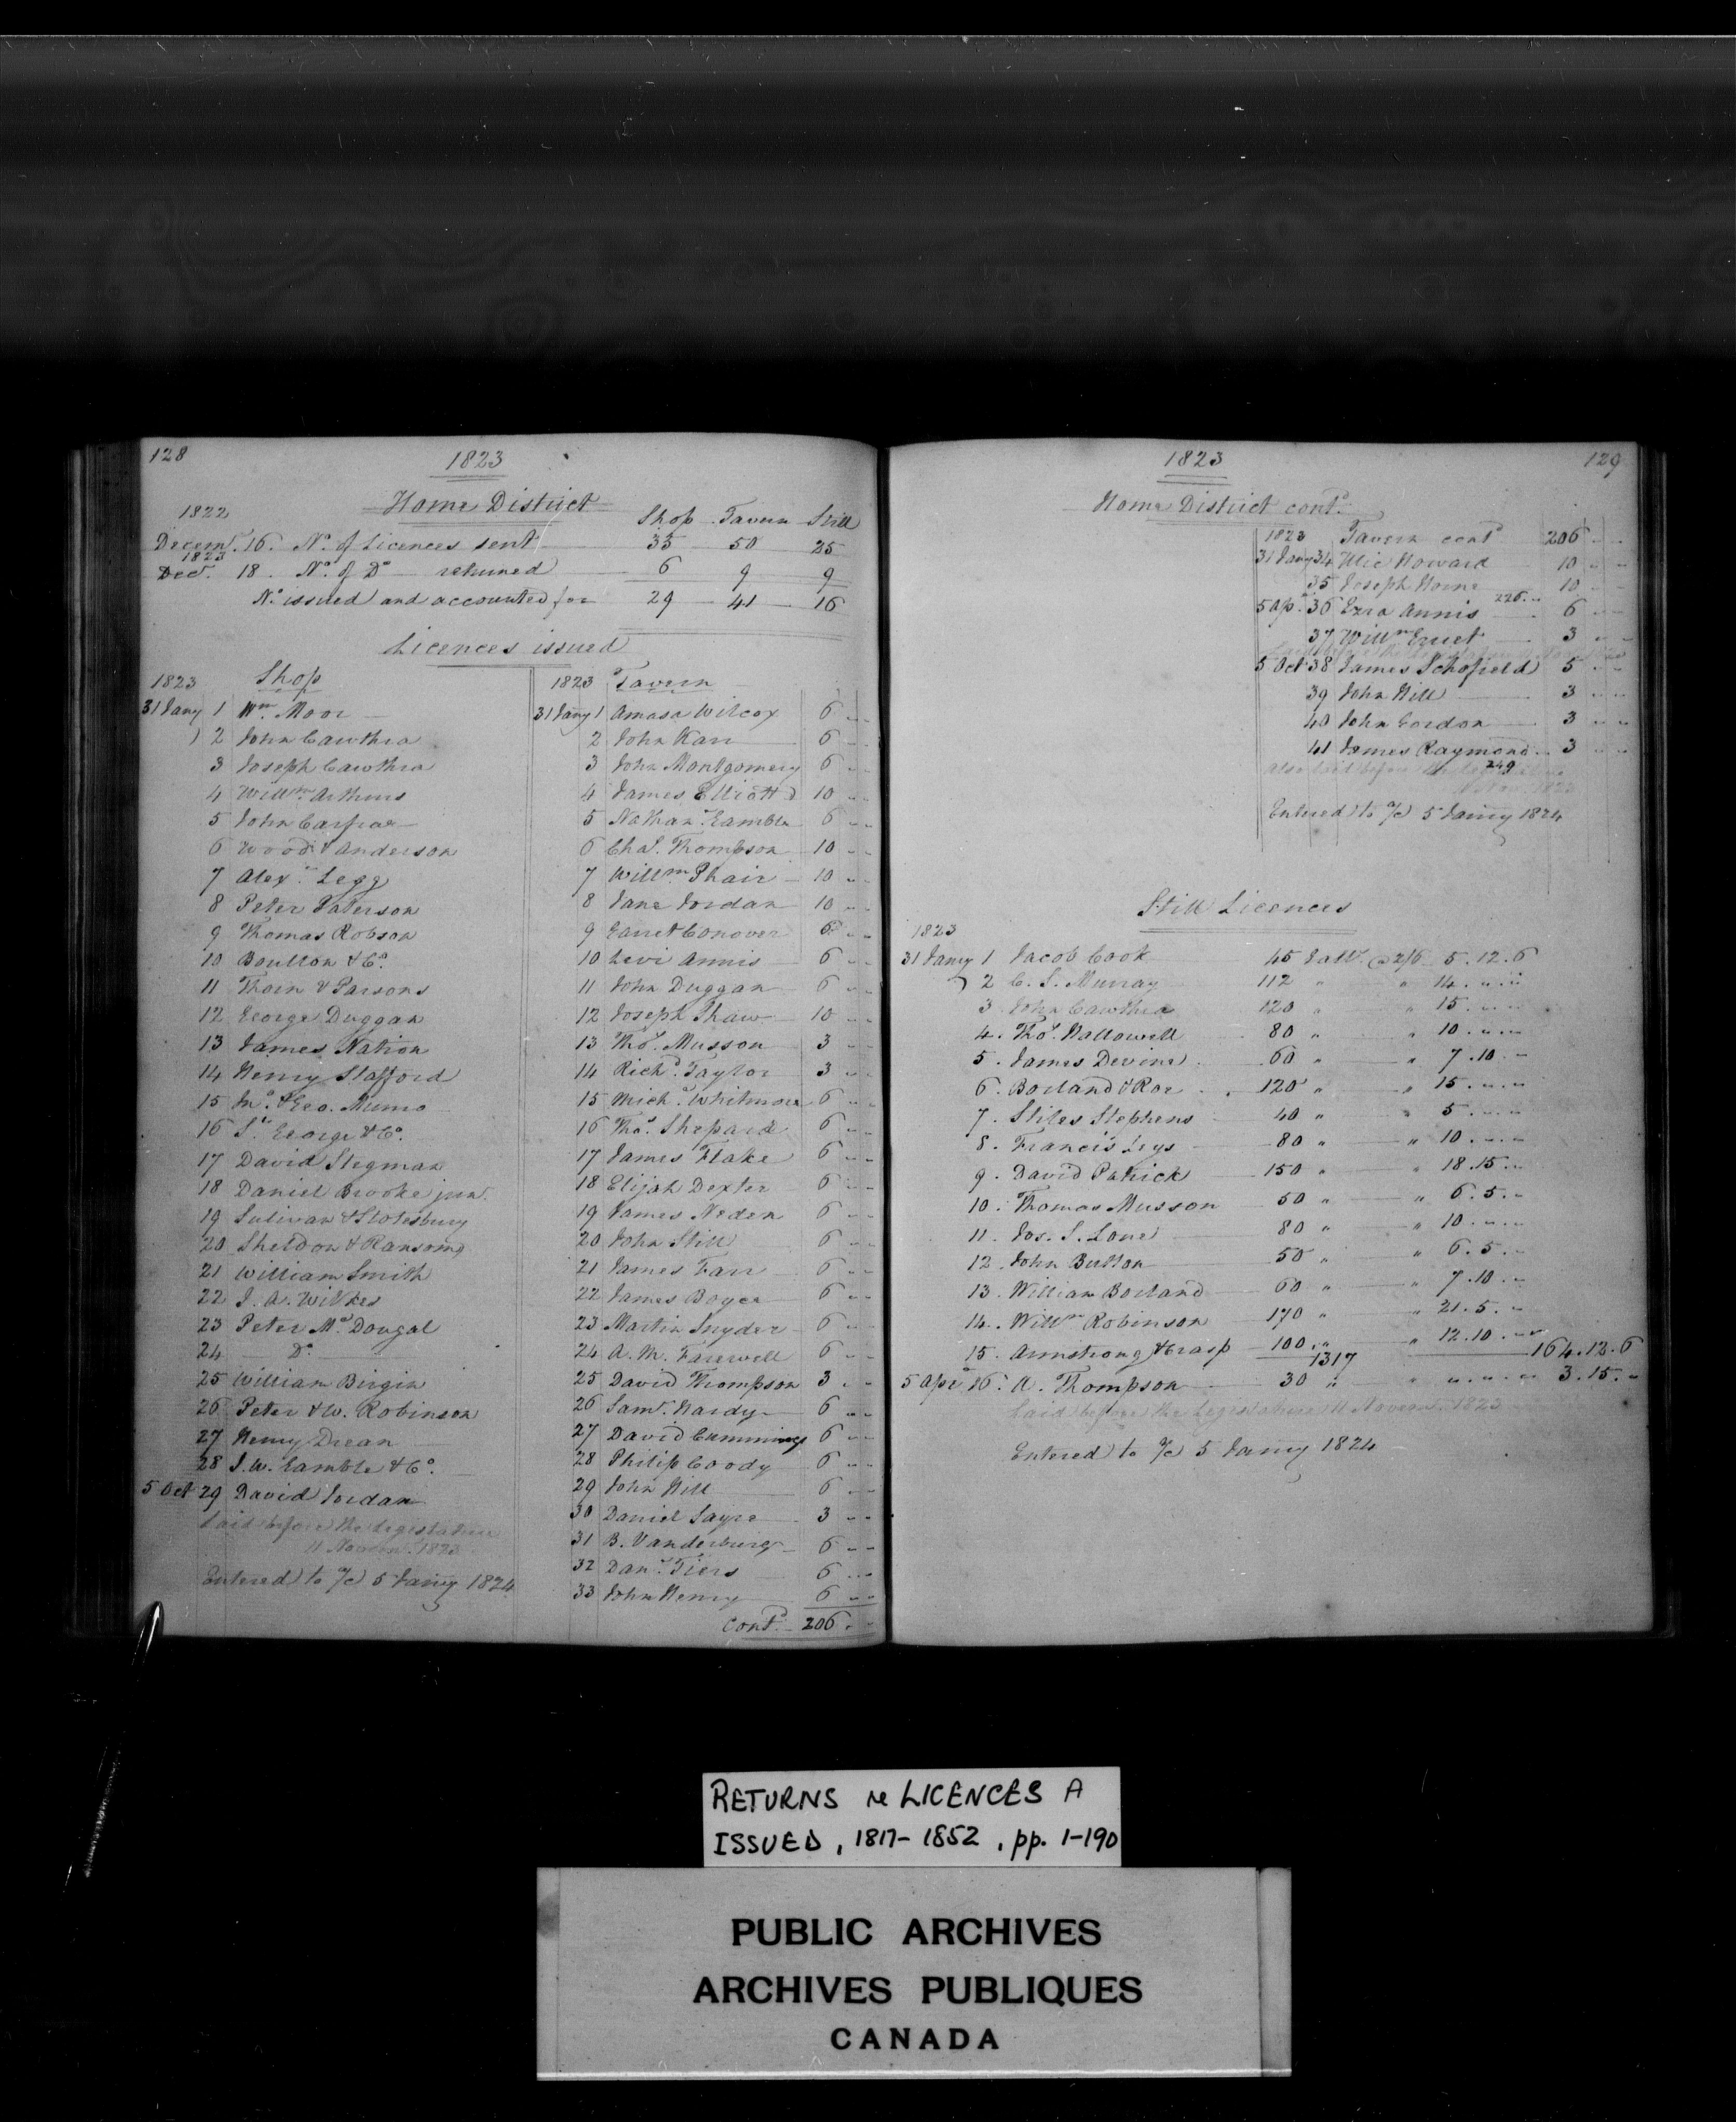 128
1823
Home District
1822
Shop Tavern Still
Decemr. 16. No. of Licences sent 35 50 25
1823
Decr. 18. No. of Do returned 6 9 9
No. issued and accounted for 29 41 16
Licences issued
1823 Shop
31 Jany 1 Wm. Moor
2 John Cawthra
3 Joseph Cawthra
4 Willm. Arthurs
5 John Carfrae
6 Wood & Anderson
7 Alexr. Legg
8 Peter Paterson
9 Thomas Robson
10 Boulton & Co.
11 Thorn & Parsons
12 George Duggan
13 James Nation
14 Henry Stafford
15 Jno. & Geo. Munro
16 St. George & Co.
17 David Stegman
18 Daniel Brooke junr.
19 Sulivan & Stotesbury
20 Sheldon & Ransom
21 William Smith
22 J. A. Wilkes
23 Peter McDougal
24 Do.
25 William Birgin
26 Peter & W. Robinson
27 Henry Drean
28 J. W. Gamble & Co.
5 Oct 29 David Jordan
Laid before the Legislature
11 Novemr. 1823
Entered to a/c 5 Jany 1824
1823 Tavern
31 Jany 1 Amasa Wilcox 6 " "
2 John Karr 6 " "
3 John Montgomery 6 " "
4 James Elliott 10 " "
5 Nathan Gamble 6 " "
6 Chas. Thompson 10 " "
7 Willm. Phair 10 " "
8 Jane Jordan 10 " "
9 Garret Conover 6 " "
10 Levi Annis 6 " "
11 John Duggan 6 " "
12 Joseph Shaw 10 " "
13 Thos. Musson 3 " "
14 Richd. Taylor 3 " "
15 Michl. Whitmore 6 " "
16 Thos. Shepard 6 " "
17 James Flake 6 " "
18 Elijah Dexter 6 " "
19 James Neden 6 " "
20 John Still 6 " "
21 James Farr 6 " "
22 James Boyce 6 " "
23 Martin Snyder 6 " "
24 A. M. Farewell 6 " "
25 David Thompson 3 " "
26 Saml. Hardy 6 " "
27 David Cummings 6 " "
28 Philip Coody 6 " "
29 John Hill 6 " "
30 Daniel Sayre 3 " "
31 B. Vanderburg 6 " "
32 Danl. Tiers 6 " "
33 John Henry 6 " "
Contd. 206 " "
1823
129
Home District contd.
1823 Tavern contd. 206 " "
31 Jany 34 Ulic Howard 10 " "
35 Joseph Horne 10 " "
226 "
5 Ap. 36 Ezra Annis 6 " "
37 Willm. 3 " "
5 Oct 38 James Schofield 5 " "
39 John Hill 3 " "
40 John Gordon 3 " "
41 James Raymond 3 " "
249
Also laid before the Legislature
Entered to a/c 5 Jany 1824
Still Licences
1823
31 Jany 1 Jacob Cook 45 Galls. @ 2/6 5.12.6
2 C. S. Murray 112 " " 14. " . "
3 John Cawthra 120 " " 15. " . "
4. Thos. Hallowell 80 " " 10. " . "
5. James Devins 60 " " 7.10. "
6. Borland & Roe 120 " " 15. " . "
7. Stiles Stephens 40 " " 5. " . "
8. Francis Leys 80 " " 10. " . "
9. David Patrick 150 " " 18.15. "
10. Thomas Musson 50 " " 6.5. "
11. Jos. S. Lane 80 " " 10. " . "
12. John Button 50 " " 6.5. "
13. William Borland 60 " " 7.10. "
14. Willm. Robinson 170 " " 21.5. "
15. Armstrong & Crasp 100 " " 12.10. " 164.12.6
1317
5 Apr 16. A. Thompson 30 " " " . " . " 3.15. "
Laid before the Legislature 11 Novemr. 1823
Entered to a/c 5 Jany 1824
RETURNS re LICENCES A
ISSUED, 1817-1852, pp. 1-190
PUBLIC ARCHIVES
ARCHIVES PUBLIQUES
CANADA